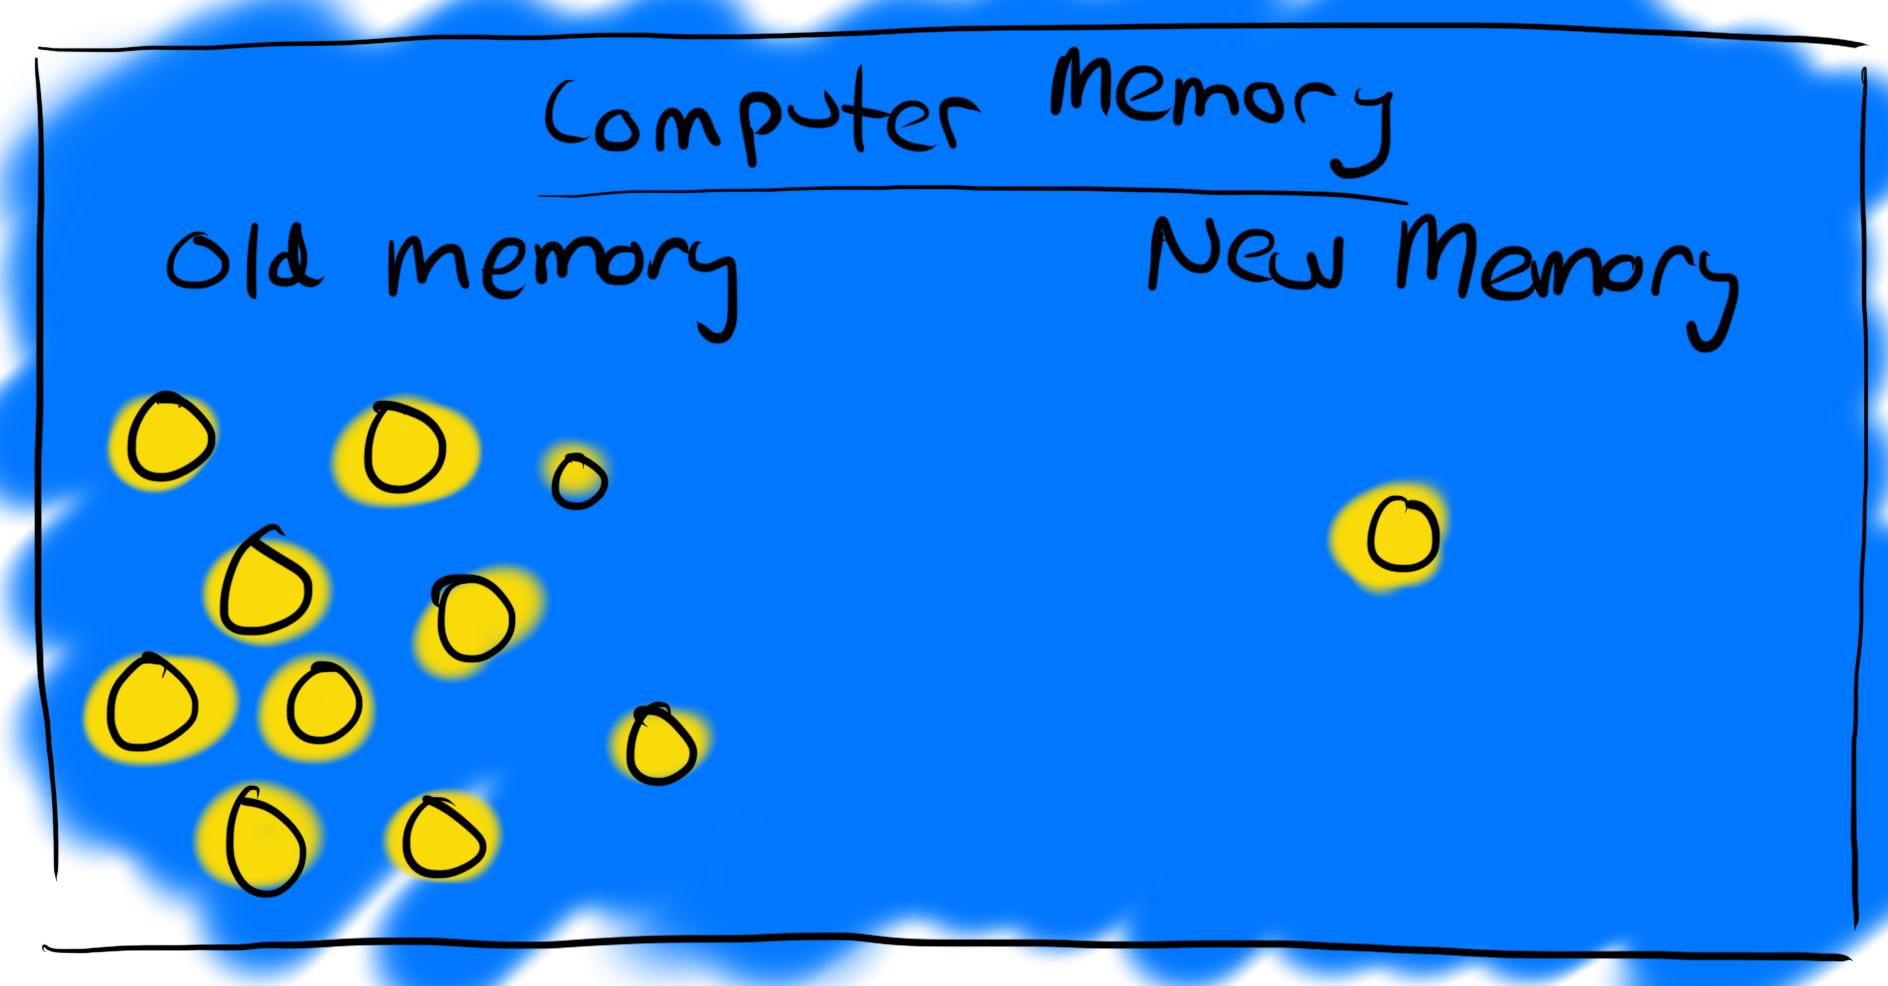 Computer Memory
Old memory
New Memory